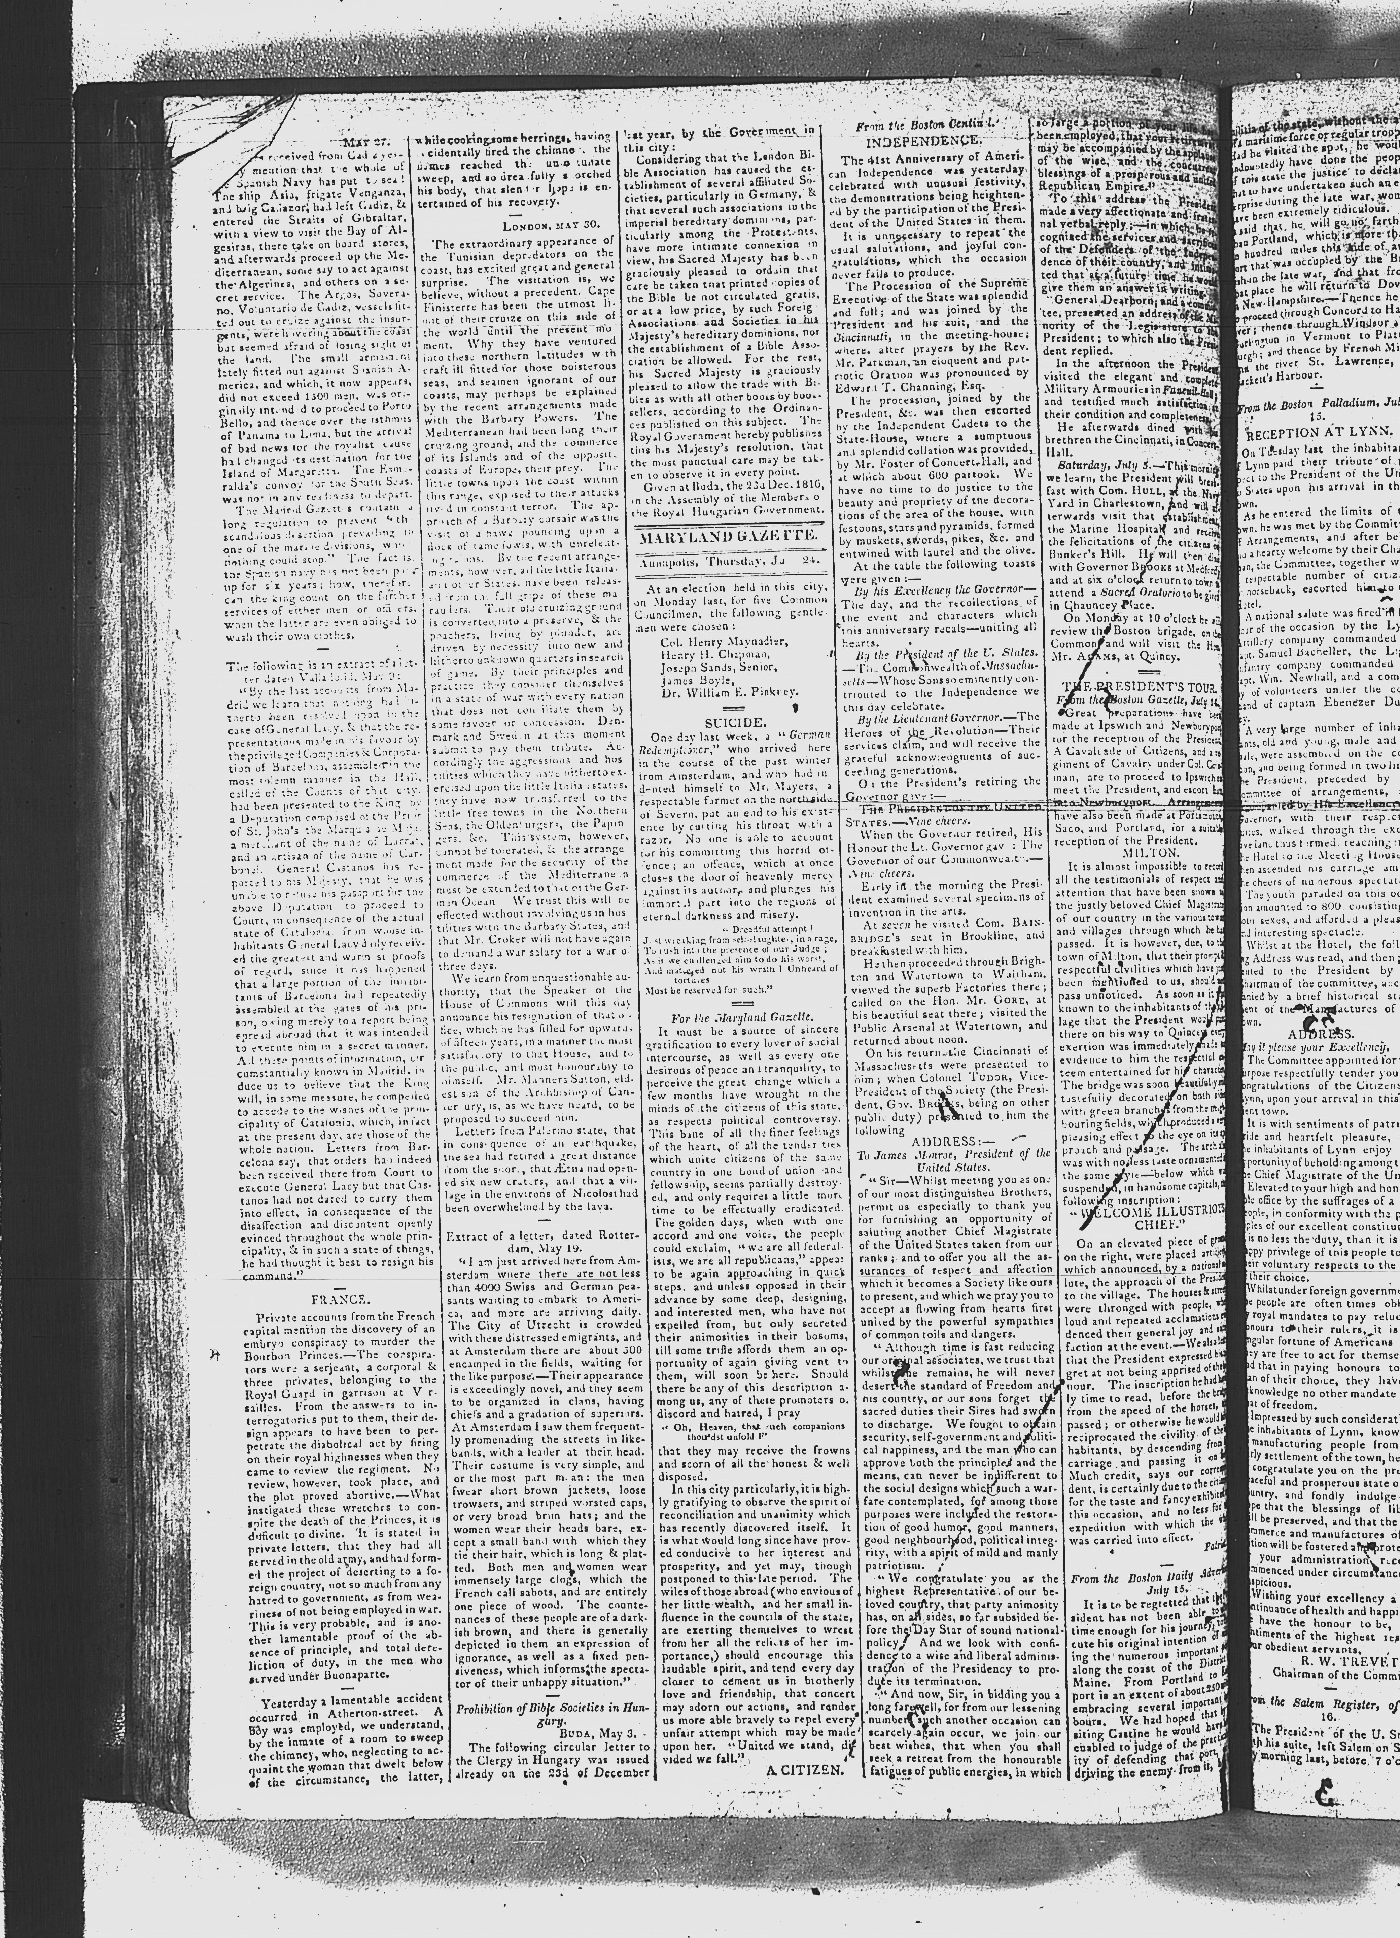 MAY 27.
received from Cadiz yes-
mention that the whole of
the Spanish Navy has put to sea!
The ship Asia, frigate Venganza,
and brig Galiazor, had left Cadiz, &
entered the Straits of Gibraltar,
with a view to visit the Bay of Al-
gesiras, there take on board stores,
and afterwards proceed up the Me-
diterranean, some say to act against
the Algerines, and others on a se-
cret service. The Argos, Sovera-
no, Voluntario de Cadiz, vessels fit-
ted out to cruize against the insur-
gents, were hovering about the coast
but seemed afraid of losing sight of
the land. The small armament
lately fitted out against Spanish A-
merica, and which, it now appears,
did not exceed 1500 men, was ori-
ginally intended to proceed to Porto
Bello, and thence over the isthmus
of Panama to Lima, but the arrival
of bad news for the royalist cause
had changed its destination for the
Island of Margaretta. The Esme-
ralda's convoy for the South Seas,
was not in any readiness to depart.
The Madrid Gazettes contain a
long regulation to prevent the
scandalous desertion prevailing in
one of the marine divisions,
nothing could stop." The fact is,
the Spanish navy has not been paid
up for six years; how, therefore,
can the king count on the further
services of either men or officers,
when the latter are even obliged to
wash their own clothes.
The following is an extract of a let-
ter dated Valladolid, May 9:
"By the last accounts from Ma-
drid we learn that nothing had hi-
therto been resolved upon in the
case of General Lacy, & that the re-
presentations made in his favour by
the privileged Companies & Corpora-
tion of Barcelona, assembled in the
most solemn manner in the Hall,
called of the Counts of that city,
had been presented to the King by
a Deputation composed of the Prior
of St. John's, the Marquis de
a merchant of the name of Larrat,
and an artisan of the name of Car-
bonel. General Castanos has re-
ported to his Majesty, that he was
unable to refuse his passport for the
above Deputation to proceed to
Court, in consequence of the actual
state of Catalonia, from whose in-
habitants General Lacy daily receiv-
ed the greatest and warmest proofs
of regard, since it has happened
that a large portion of the inhabi-
tants of Barcelona had repeatedly
assembled at the gates of his pri-
son, owing merely to a report being
spread abroad that it was intended
to execute him in a secret manner.
All these points of information, cir-
cumstantially known in Madrid, in-
duce us to believe that the King
will, in some measure, be compelled
to accede to the wishes of the prin-
cipality of Catalonia, which, in fact
at the present day, are those of the
whole nation. Letters from Bar-
celona say, that orders had indeed
been received there from Court to
execute General Lacy but that Cas-
tanos had not dared to carry them
into effect, in consequence of the
disaffection and discontent openly
evinced throughout the whole prin-
cipality, & in such a state of things,
he had thought it best to resign his
command."
FRANCE.
Private accounts from the French
capital mention the discovery of an
embryo conspiracy to murder the
Bourbon Princes.—The conspira-
tors were a serjeant, a corporal &
three privates, belonging to the
Royal Guard in garrison at Ver-
sailles. From the answers to in-
terrogatories put to them, their de-
sign appears to have been to per-
petrate the diabolical act by firing
on their royal highnesses when they
came to review the regiment. No
review, however, took place, and
the plot proved abortive.—What
instigated these wretches to con-
spire the death of the Princes, it is
difficult to divine. It is stated in
private letters, that they had all
served in the old army, and had form-
ed the project of deserting to a fo-
reign country, not so much from any
hatred to government, as from wea-
riness of not being employed in war.
This is very probable, and is ano-
ther lamentable proof of the ab-
sence of principle, and total dere-
liction of duty, in the men who
served under Buonaparte.
Yesterday a lamentable accident
occurred in Atherton-street. A
Boy was employed, we understand,
by the inmate of a room to sweep
the chimney, who, neglecting to ac-
quaint the woman that dwelt below
of the circumstance, the latter,
while cooking some herrings, having
accidentally fired the chimney, the
flames reached the unfortunate
sweep, and so dreadfully scorched
his body, that slender hope is en-
tertained of his recovery.
LONDON, MAY 30.
The extraordinary appearance of
the Tunisian depredators on the
coast, has excited great and general
surprise. The visitation is, we
believe, without a precedent. Cape
Finisterre has been the utmost li-
mit of their cruize on this side of
the world until the present mo-
ment. Why they have ventured
into these northern latitudes with
craft ill fitted for those boisterous
seas, and seamen ignorant of our
coasts, may perhaps be explained
by the recent arrangements made
with the Barbary Powers. The
Mediterranean had been long their
cruizing ground, and the commerce
of its Islands and of the opposite
coasts of Europe, their prey. The
little towns upon the coast within
this range, exposed to their attacks
lived in constant terror. The ap-
proach of a Barbary corsair was the
visit of a hawk pouncing upon a
flock of tame fowls, with unrelent-
ing talons. By the recent arrange-
ments, however, all the little Itali-
an or other States, have been releas-
ed from the fell gripe of these ma-
rauders. Their old cruizing ground
is converted into a preserve, & the
poachers, living by plunder, are
driven by necessity into new and
hitherto unknown quarters in search
of game. By their principles and
practice they consider themselves
in a state of war with every nation
that does not conciliate them by
some favour or concession. Den-
mark and Sweden at this moment
submit to pay them tribute. Ac-
cordingly the aggressions and hos-
tilities which they have hitherto ex-
ercised upon the little Italian states,
they have now transferred to the
little free towns in the Northern
Seas, the Oldenburgers, the Papin-
gers, &c. This system, however,
cannot be tolerated, & the arrange-
ment made for the security of the
commerce of the Mediterranean
must be extended to that of the Ger-
man Ocean. We trust this will be
effected without involving us in hos-
tilities with the Barbary States, and
that Mr. Croker will not have again
to demand a war salary for a war of
three days.
We learn from unquestionable au-
thority, that the Speaker of the
House of Commons will this day
announce his resignation of that of-
fice, which he has filled for upwards
of fifteen years, in a manner the most
satisfactory to that House, and to
the public, and most honourably to
himself. Mr. Manners Sutton, eld-
est son of the Archbishop of Can-
terbury, is, as we have heard, to be
proposed to succeed him.
Letters from Palermo state, that
in consequence of an earthquake,
the sea had retired a great distance
from the shore, that Ætna had open-
ed six new craters, and that a vil-
lage in the environs of Nicolosi had
been overwhelmed by the lava.
Extract of a letter, dated Rotter-
dam, May 19.
"I am just arrived here from Am-
sterdam where there are not less
than 4000 Swiss and German pea-
sants waiting to embark to Ameri-
ca, and more are arriving daily.
The City of Utrecht is crowded
with these distressed emigrants, and
at Amsterdam there are about 500
encamped in the fields, waiting for
the like purpose.—Their appearance
is exceedingly novel, and they seem
to be organized in clans, having
chiefs and a gradation of superiors.
At Amsterdam I saw them frequent-
ly promenading the streets in like-
bands, with a leader at their head.
Their costume is very simple, and
for the most part mean: the men
wear short brown jackets, loose
trowsers, and striped worsted caps,
or very broad brim hats; and the
women wear their heads bare, ex-
cept a small band with which they
tie their hair, which is long & plat-
ted. Both men and women wear
immensely large clogs, which the
French call sabots, and are entirely
one piece of wood. The counte-
nances of these people are of a dark-
ish brown, and there is generally
depicted in them an expression of
ignorance, as well as a fixed pen-
siveness, which informs the specta-
tor of their unhappy situation."
Prohibition of Bible Societies in Hun-
gary.
BUDA, May 3.
The following circular letter to
the Clergy in Hungary was issued
already on the 23d of December
last year, by the Government in
this city:
Considering that the London Bi-
ble Association has caused the es-
tablishment of several affiliated So-
cieties, particularly in Germany, &
that several such associations in the
imperial hereditary dominions, par-
ticularly among the Protestants,
have more intimate connexion in
view, his Sacred Majesty has been
graciously pleased to ordain that
care be taken that printed copies of
the Bible be not circulated gratis,
or at a low price, by such Foreign
Associations and Societies in his
Majesty's hereditary dominions, nor
the establishment of a Bible Asso-
ciation be allowed. For the rest,
his Sacred Majesty is graciously
pleased to allow the trade with Bi-
bles as with all other books by book-
sellers, according to the Ordinan-
ces published on this subject. The
Royal Government hereby publishes
this his Majesty's resolution, that
the most punctual care may be tak-
en to observe it in every point.
Given at Buda, the 23d Dec. 1816,
in the Assembly of the Members of
the Royal Hungarian Government.
MARYLAND GAZETTE.
Annapolis, Thursday, Ju 24.
At an election held in this city,
on Monday last, for five Common
Councilmen, the following gentle-
men were chosen:
Col. Henry Maynadier,
Henry H. Chapman,
Joseph Sands, Senior,
James Boyle,
Dr. William E. Pinkney.
SUICIDE.
One day last week, a "German
Redemptioner," who arrived here
in the course of the past winter
from Amsterdam, and who had in-
dented himself to Mr. Mayers, a
respectable farmer on the northside
of Severn, put an end to his exist-
ence by cutting his throat with a
razor. No one is able to account
for his committing this horrid of-
fence; an offence, which at once
closes the door of heavenly mercy
against its author, and plunges his
immortal part into the regions of
eternal darkness and misery.
" Dreadful attempt!
Just reeking from self-slaughter, in a rage,
To rush into the presence of our Judge;
As if we challenged him to do his worst,
And mattered not his wrath! Unheard of
tortures
Must be reserved for such."
For the Maryland Gazette.
It must be a source of sincere
gratification to every lover of social
intercourse, as well as every one
desirous of peace and tranquility, to
perceive the great change which a
few months have wrought in the
minds of the citizens of this state,
as respects political controversy.
This bane of all the finer feelings
of the heart, of all the tender ties
which unite citizens of the same
country in one bond of union and
fellowship, seems partially destroy-
ed, and only requires a little more
time to be effectually eradicated.
The golden days, when with one
accord and one voice, the people
could exclaim, "we are all federal-
ists, we are all republicans," appear
to be again approaching in quick
steps, and unless opposed in their
advance by some deep, designing,
and interested men, who have not
expelled from, but only secreted
their animosities in their bosoms,
till some trifle affords them an op-
portunity of again giving vent to
them, will soon be here. Should
there be any of this description a-
mong us, any of these promoters of
discord and hatred, I pray
" Oh, Heaven, that such companions
thou'dst unfold!"
that they may receive the frowns
and scorn of all the honest & well
disposed.
In this city particularly, it is high-
ly gratifying to observe the spirit of
reconciliation and unanimity which
has recently discovered itself. It
is what would long since have prov-
ed conducive to her interest and
prosperity, and yet may, though
postponed to this late period. The
wiles of those abroad (who envious of
her little wealth, and her small in-
fluence in the councils of the state,
are exerting themselves to wrest
from her all the relicks of her im-
portance,) should encourage this
laudable spirit, and tend every day
closer to cement us in brotherly
love and friendship, that concert
may adorn our actions, and render
us more able bravely to repel every
unfair attempt which may be made
upon her. "United we stand, di-
vided we fall."
A CITIZEN.
From the Boston Centinel.
INDEPENDENCE.
The 41st Anniversary of Ameri-
can Independence was yesterday
celebrated with unusual festivity,
the demonstrations being heighten-
ed by the participation of the Presi-
dent of the United States in them.
It is unnecessary to repeat the
usual salutations, and joyful con-
gratulations, which the occasion
never fails to produce.
The Procession of the Supreme
Executive of the State was splendid
and full; and was joined by the
President and his suit, and the
Cincinnati, in the meeting-house;
where, after prayers by the Rev.
Mr. Parkman, an eloquent and pat-
riotic Oration was pronounced by
Edward T. Channing, Esq.
The procession, joined by the
President, &c. was then escorted
by the Independent Cadets to the
State-House, where a sumptuous
and splendid collation was provided,
by Mr. Foster of Concert-Hall, and
at which about 600 partook. We
have no time to do justice to the
beauty and propriety of the decora-
tions of the area of the house, with
festoons, stars and pyramids, formed
by muskets, swords, pikes, &c. and
entwined with laurel and the olive.
At the table the following toasts
were given:—
By his Excellency the Governor—
The day, and the recollections of
the event and characters which
this anniversary recals—uniting all
hearts.
By the President of the U. States.
—The Commonwealth of Massachu-
setts—Whose Sons so eminently con-
tributed to the Independence we
this day celebrate.
By the Lieutenant Governor.—The
Heroes of the Revolution—Their
services claim, and will receive the
grateful acknowledgments of suc-
ceeding generations.
On the President's retiring the
Governor gave:—
THE PRESIDENT OF THE UNITED
STATES.—Nine cheers.
When the Governor retired, His
Honour the Lt. Governor gave: The
Governor of our Commonwealth.—
Nine cheers.
Early in the morning the Presi-
dent examined several specimens of
invention in the arts.
At seven he visited Com. BAIN-
BRIDGE's seat in Brookline, and
breakfasted with him.
He then proceeded through Brigh-
ton and Watertown to Waltham,
viewed the superb Factories there;
called on the Hon. Mr. GORE, at
his beautiful seat there; visited the
Public Arsenal at Watertown, and
returned about noon.
On his return the Cincinnati of
Massachusetts were presented to
him; when Colonel TUDOR, Vice-
President of the Society (the Presi-
dent, Gov. Brooks, being on other
public duty) presented to him the
following
ADDRESS:—
To James Monroe, President of the
United States.
" Sir—Whilst meeting you as one
of our most distinguished Brothers,
permit us especially to thank you
for furnishing an opportunity of
saluting another Chief Magistrate
of the United States taken from our
ranks; and to offer you all the as-
surances of respect and affection
which it becomes a Society like ours
to present, and which we pray you to
accept as flowing from hearts first
united by the powerful sympathies
of common toils and dangers.
" Although time is fast reducing
our original associates, we trust that
whilst one remains, he will never
desert the standard of Freedom and
his country, or our sons forget the
sacred duties their Sires had sworn
to discharge. We fought to obtain
security, self-government and politi-
cal happiness, and the man who can
approve both the principles and the
means, can never be indifferent to
the social designs which such a war-
fare contemplated, for among those
purposes were included the restora-
tion of good humor, good manners,
good neighbourhood, political integ-
rity, with a spirit of mild and manly
patriotism.
" We congratulate you as the
highest Representative of our be-
loved country, that party animosity
has, on all sides, so far subsided be-
fore the Day Star of sound national
policy. And we look with confi-
dence to a wise and liberal adminis-
tration of the Presidency to pro-
duce its termination.
" And now, Sir, in bidding you a
long farewell, for from our lessening
number such another occasion can
scarcely again occur, we join our
best wishes, that when you shall
seek a retreat from the honourable
fatigues of public energies, in which
so large a portion of your life has
been employed, that your retirement
may be accompanied by the applause
of the wise, and the concurrent
blessings of a prosperous and united
Republican Empire."
To this address the President
made a very affectionate and frater-
nal verbal reply;—in which he re-
cognised the services and sacrifices
of the Defenders of the Indepen-
dence of their country, and intima-
ted that at a future time he would
give them an answer in writing.
General Dearborn, and a commit-
tee, presented an address of the Mi-
nority of the Legislature to the
President; to which also the Presi-
dent replied.
In the afternoon the President
visited the elegant and complete
Military Armouries in Faneuil-Hall,
and testified much satisfaction at
their condition and completeness.
He afterwards dined with his
brethren the Cincinnati, in Concert
Hall.
Saturday, July 5.—This morning
we learn, the President will break-
fast with Com. HULL, at the Navy
Yard in Charlestown, and will af-
terwards visit that establishment,
the Marine Hospital and receive
the felicitations of the citizens on
Bunker's Hill. He will then dine
with Governor Brooks at Medford,
and at six o'clock return to town &
attend a Sacred Oratorio to be given
in Chauncey Place.
On Monday at 10 o'clock he will
review the Boston brigade, on the
Common, and will visit the Hon.
Mr. ADAMS, at Quincy.
THE PRESIDENT'S TOUR.
From the Boston Gazette, July 14.
Great preparations have been
made at Ipswich and Newburyport
for the reception of the President.
A Cavalcade of Citizens, and a re-
giment of Cavalry under Col. Cole-
man, are to proceed to Ipswich to
meet the President, and escort him
into Newburyport. Arrangements
have also been made at Portsmouth,
Saco, and Portland, for a suitable
reception of the President.
MILTON.
It is almost impossible to record
all the testimonials of respect and
attention that have been shown to
the justly beloved Chief Magistrate
of our country in the various towns
and villages through which he has
passed. It is however, due, to the
town of Milton, that their prompt
respectful civilities which have just
been mentioned to us, should not
pass unnoticed. As soon as it was
known to the inhabitants of the vil-
lage that the President would
there on his way to Quincy every
exertion was immediately made to
evidence to him the respectful es-
teem entertained for his character.
The bridge was soon beautifully and
tastefully decorated on both sides
with green branches from the neigh-
bouring fields, which produced a most
pleasing effect to the eye on its ap-
proach and passage. The arch
was with no less taste ornamented in
the same style—below which was
suspended, in handsome capitals, the
following inscription:
"WELCOME ILLUSTRIOUS
CHIEF."
On an elevated piece of ground
on the right, were placed artillery
which announced, by a national sa-
lute, the approach of the President
to the village. The houses & streets
were thronged with people, whose
loud and repeated acclamations evi-
denced their general joy and satis-
faction at the event.—We also learn
that the President expressed his re-
gret at not being apprised of the ho-
nour. The inscription he had hard-
ly time to read, before the bridge
from the speed of the horses, was
passed; or otherwise he would have
reciprocated the civility of the in-
habitants, by descending from his
carriage and passing it on foot.
Much credit, says our correspon-
dent, is certainly due to the citizens
for the taste and fancy exhibited on
this occasion, and no less for the
expedition with which the whole
was carried into effect.
Patriot.
From the Boston Daily Advertiser,
July 15.
It is to be regretted that the Pre-
sident has not been able to
time enough for his journey, to exe-
cute his original intention of visit-
ing the numerous important places
along the coast of the District of
Maine. From Portland to East-
port is an extent of about 250 miles
embracing several important har-
bours. We had hoped that by vi-
siting Castine he would have been
enabled to judge of the practicabil-
ity of defending that port, and of
driving the enemy from it, by the
militia of the state, without the
a maritime force or regular troops.
had he visited the spot, he would
undoubtedly have done the people
of this state the justice to declare
that to have undertaken such an
prise during the late war, would
have been extremely ridiculous.
is said that, he will go no farther
than Portland, which is more than
a hundred miles this side of any
port that was occupied by the
in the late war, and that from
that place he will return to Dover
New-Hampshire.—Thence he
proceed through Concord to Ha-
ver; thence through Windsor &
lington in Vermont to Platts-
burgh; and thence by French Mills
on the river St. Lawrence, to
Sackett's Harbour.
From the Boston Palladium, July
15.
RECEPTION AT LYNN.
On Tuesday last the inhabitants
of Lynn paid their tribute of res-
pect to the President of the Uni-
ted States upon his arrival in that
town.
As he entered the limits of the
town, he was met by the Committee
of Arrangements, and after being
a hearty welcome by their Chair-
man, the Committee, together with
respectable number of citizens
horseback, escorted him to the
Hotel.
A national salute was fired in
honour of the occasion by the Lynn
artillery company commanded by
Capt. Samuel Bacheller, the Lynn
infantry company commanded by
Capt. Wm. Newhall, and a com-
pany of volunteers under the com-
mand of captain Ebenezer
A very large number of inhabi-
tants, old and young, male and fe-
male, were assembled on the
and being formed in two lines
the President, preceded by the
committee of arrangements, ac-
companied by His Excellency the
Governor, with their respective
suites, walked through the ex-
avenue thus formed, reaching from
the Hotel to the Meeting House,
then ascended his carriage amidst
the cheers of numerous spectators.
The youth paraded on this oc-
casion amounted to 800 consisting
both sexes, and afforded a pleasing
and interesting spectacle.
Whilst at the Hotel, the follow-
ing Address was read, and then pre-
sented to the President by the
chairman of the committee, accom-
panied by a brief historical state-
ment of the Manufactures of the
town.
ADDRESS.
May it please your Excellency,
The Committee appointed for the
purpose respectfully tender you the
congratulations of the Citizens of
Lynn, upon your arrival in this an-
cient town.
It is with sentiments of patriotic
pride and heartfelt pleasure, that
the inhabitants of Lynn enjoy the
opportunity of beholding amongst
the Chief Magistrate of the Union.
Elevated to your high and honour-
able office by the suffrages of a free
people, in conformity with the prin-
ciples of our excellent constitution
it is no less the duty, than it is the
happy privilege of this people to
their voluntary respects to the
their choice.
Whilst under foreign governments
the people are often times obliged
royal mandates to pay reluctant
honours to their rulers, it is the
singular fortune of Americans that
they are free to act for themselves,
and that in paying honours to the
man of their choice, they have
acknowledge no other mandate than
that of freedom.
Impressed by such considerations
the inhabitants of Lynn, known as
manufacturing people from the
early settlement of the town, beg to
congratulate you on the present
peaceful and prosperous state of our
country, and fondly indulge the
hope that the blessings of liberty
will be preserved, and that the com-
merce and manufactures of the
nation will be fostered and protected
by your administration,
commenced under circumstances so
auspicious.
Wishing your excellency a con-
tinuance of health and happiness,
have the honour to be, with
sentiments of the highest respect,
your obedient servants.
R. W. TREVETT
Chairman of the Committee.
From the Salem Register, of July
16.
The President of the U. States,
with his suite, left Salem on
morning last, before 7 o'clock